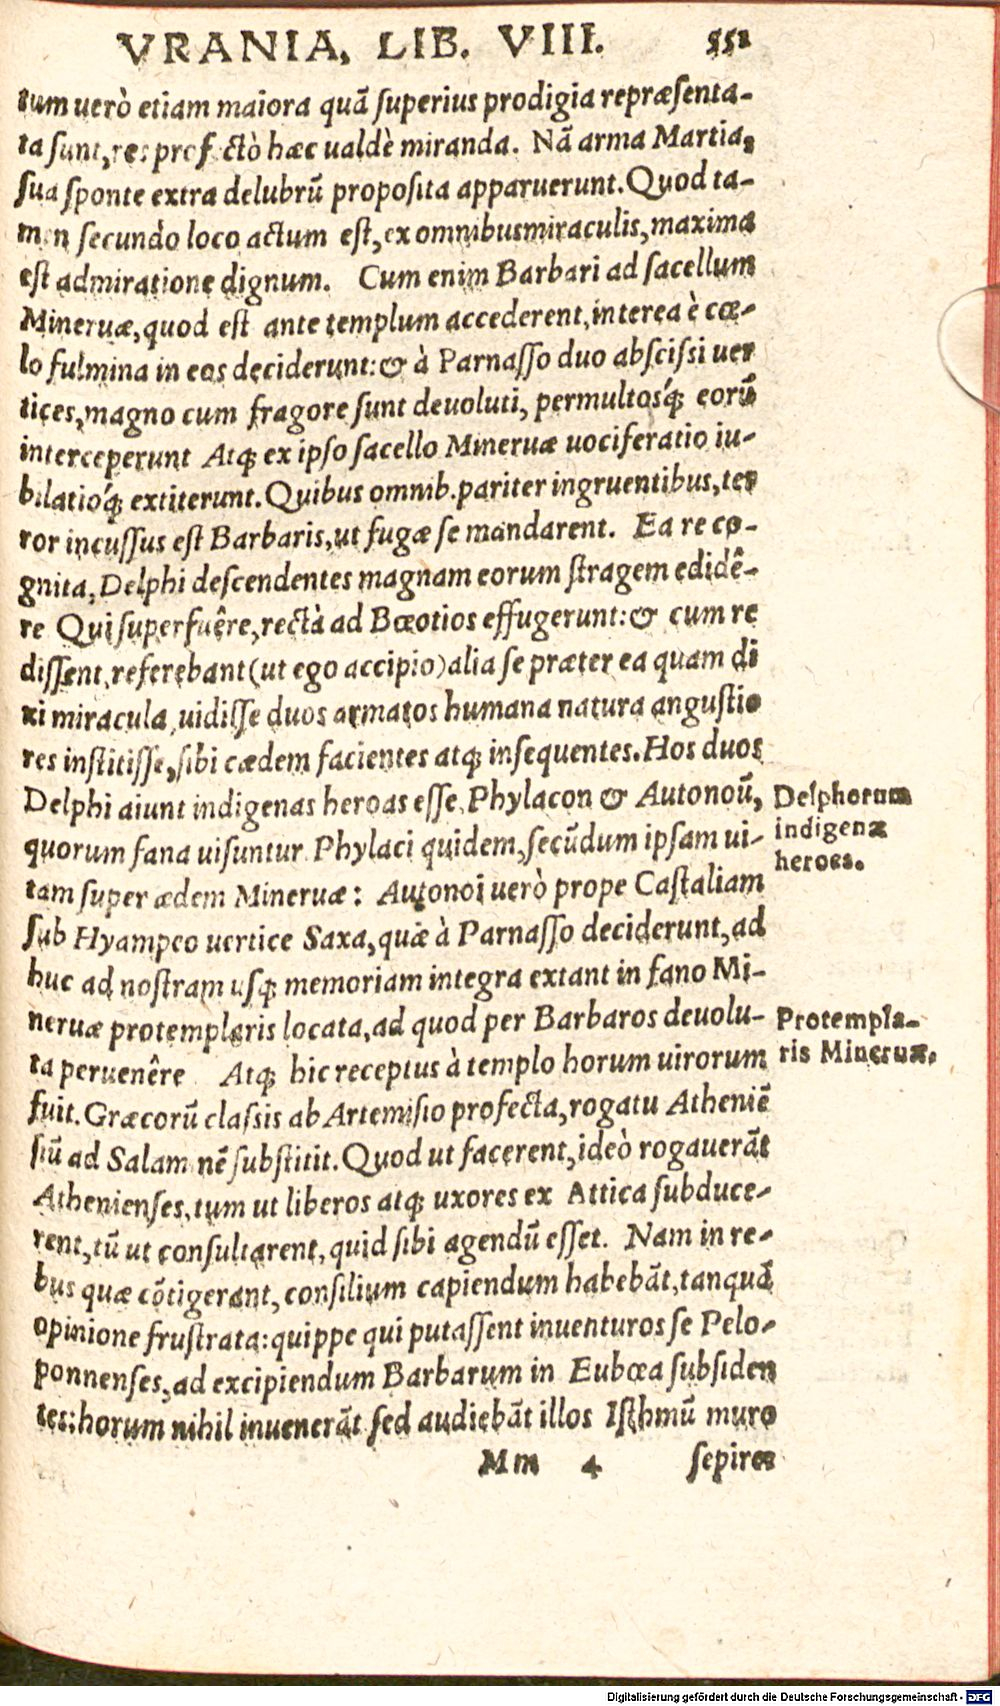 VRANIA, LIB. VIII. 551
tum uerò etiam maiora quā ſuperius prodigia repræſenta-
ta ſunt, res profectò hæc ualdè miranda. Nā arma Martia,
ſua ſponte extra delubrū propoſita apparuerunt. Quod ta-
men ſecundo loco actum eſt, ex omnibus miraculis, maxima
eſt admiratione dignum. Cum enim Barbari ad ſacellum
Mineruæ, quod eſt ante templum accederent, interea è cœ-
lo fulmina in eos deciderunt: & à Parnaſſo duo abſciſsi uer
tices, magno cum fragore ſunt deuoluti, permultosq́; eorū
interceperunt Atq; ex ipſo ſacello Mineruæ uociferatio iu-
bilatioq́; extiterunt. Quibus omnib. pariter ingruentibus, ter
ror incuſſus eſt Barbaris, ut fugæ ſe mandarent. Ea re co-
gnita, Delphi deſcendentes magnam eorum ſtragem edidê-
re Qui ſuperfuêre, rectà ad Bœotios effugerunt: & cum re
diſſent, referebant (ut ego accipio) alia ſe præter ea quam di
xi miracula, uidiſſe duos armatos humana natura anguſtio
res inſtitiſſe, ſibi cædem facientes atq; inſequentes. Hos duos
Delphi aiunt indigenas heroas eſſe, Phylacon & Autonoū,
quorum fana uiſuntur Phylaci quidem, ſecūdum ipſam ui-
tam ſuper ædem Mineruæ: Autonoi uerò prope Caſtaliam
ſub Hyampeo uertice Saxa, quæ à Parnaſſo deciderunt, ad
huc ad noſtram uſq; memoriam integra extant in fano Mi-
neruæ protemplaris locata, ad quod per Barbaros deuolu-
ta peruenêre Atq; hic receptus à templo horum uirorum
fuit. Græcorū claſsis ab Artemiſio profecta, rogatu Atheniē
ſiū ad Salaminē ſubſtitit. Quod ut facerent, ideò rogauerāt
Athenienſes, tum ut liberos atq; uxores ex Attica ſubduce-
rent, tū ut conſultarent, quid ſibi agendū eſſet. Nam in re-
bus quæ cōtigerant, conſilium capiendum habebāt, tanquā
opinione fruſtrata: quippe qui putaſſent inuenturos ſe Pelo-
ponnenſes, ad excipiendum Barbarum in Eubœa ſubſiden
tes: horum nihil inuenerāt ſed audiebāt illos Iſthmū muro
Mm 4 ſepires
Delphorum
indigenæ
heroes.
Protempla-
ris Mineruæ.
Digitalisierung gefördert durch die Deutsche Forschungsgemeinschaft - DFG